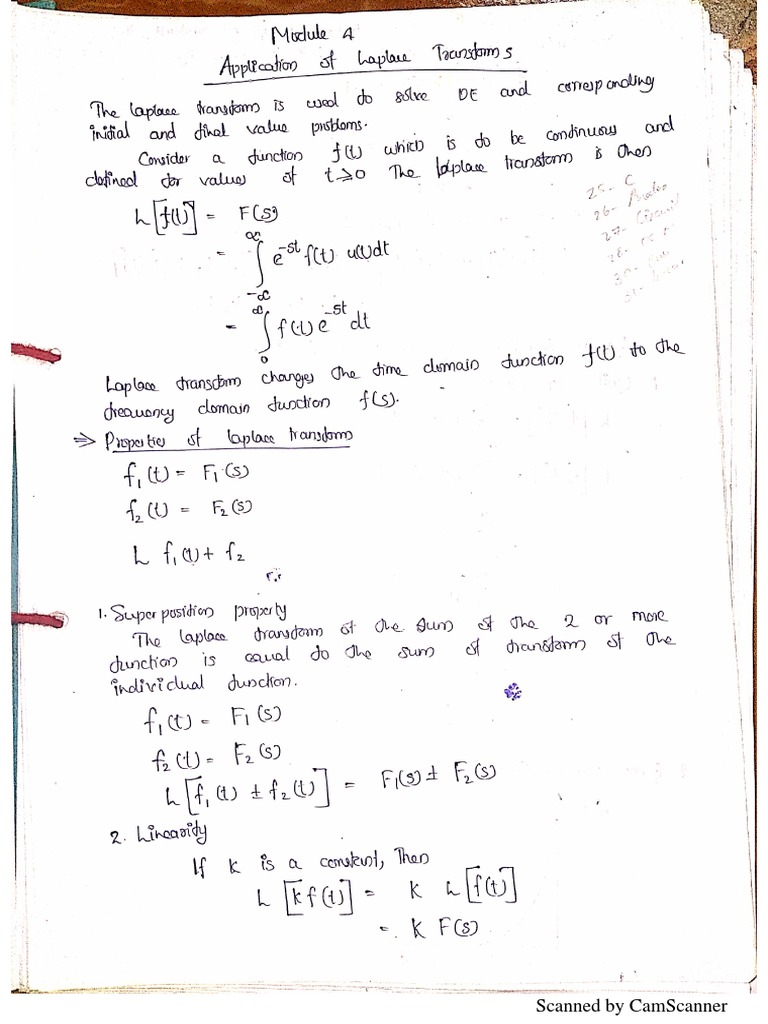 Module 4
Application of Laplace Transforms
The laplace transform is used to solve DE and corresponding
initial and final value problems.
Consider a function f(t) which is to be continuous and
defined for values of t≥0 The laplace transform is then
L[f(t)] = F(s)
= ∫_{-∞}^{∞} e^{-st} f(t) u(t)dt
= ∫_{0}^{∞} f(t) e^{-st} dt
Laplace transform changes the time domain function f(t) to the
frequency domain function f(s).
⇒ Properties of laplace transform
f₁(t) = F₁(s)
f₂(t) = F₂(s)
L f₁(t) + f₂
1. Superposition property
The laplace transform of the sum of the 2 or more
function is equal to the sum of transform of the
individual function.
f₁(t) = F₁(s)
f₂(t) = F₂(s)
L[f₁(t) ± f₂(t)] = F₁(s) ± F₂(s)
2. Linearity
If K is a constant, Then
L[kf(t)] = K L[f(t)]
= K F(s)
Scanned by CamScanner